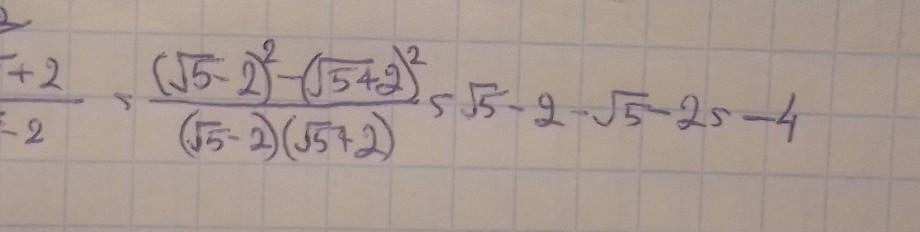 √+2/√-2 = (√5-2)²-(√5+2)²/(√5-2)(√5+2) = √5-2-√5-2 = -4